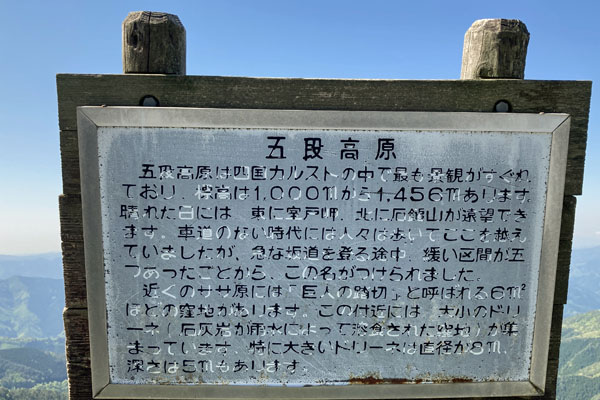 五段高原
五段高原は四国カルストの中で最も景観がすぐれ
ており、標高は1,000mから1,456mあります。
晴れた日には、東に室戸岬、北に石鎚山が遠望でき
ます。車道のない時代には人々はあいてここを越え
ていましたが、急な坂道を登る途中、緩い区間が五
つあったことから、この名がつけられました。
近くのササ原には「巨人の踏切」と呼ばれる6m²
ほどの窪地があります。この付近には、大小のドリ
ーネ（石灰岩が雨水によって溶食された窪地）が集
まっています。特に大きいドリーネは直径が8m、
深さは5mもあります。